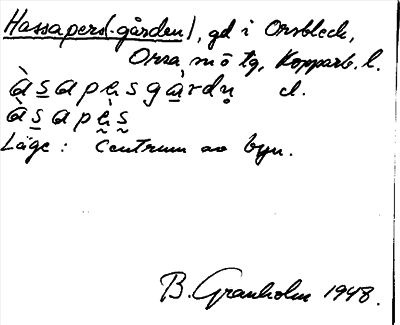 Hassapers(-gården), gd i Orsbleck,
Orsa sn ö tg, Kopparb. l.
àsapęsgàrdṇ d.
àsapès
Läge: Centrum av byn.
B. Granholm 1948.